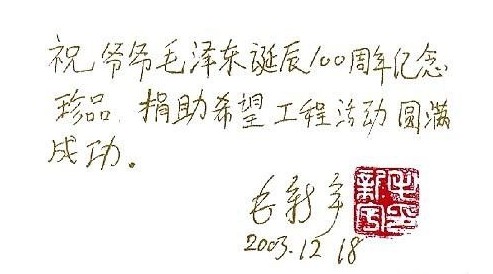 祝爷爷毛泽东诞辰100周年纪念
珍品 捐助希望工程活动圆满
成功。
毛新宇
2003.12 18